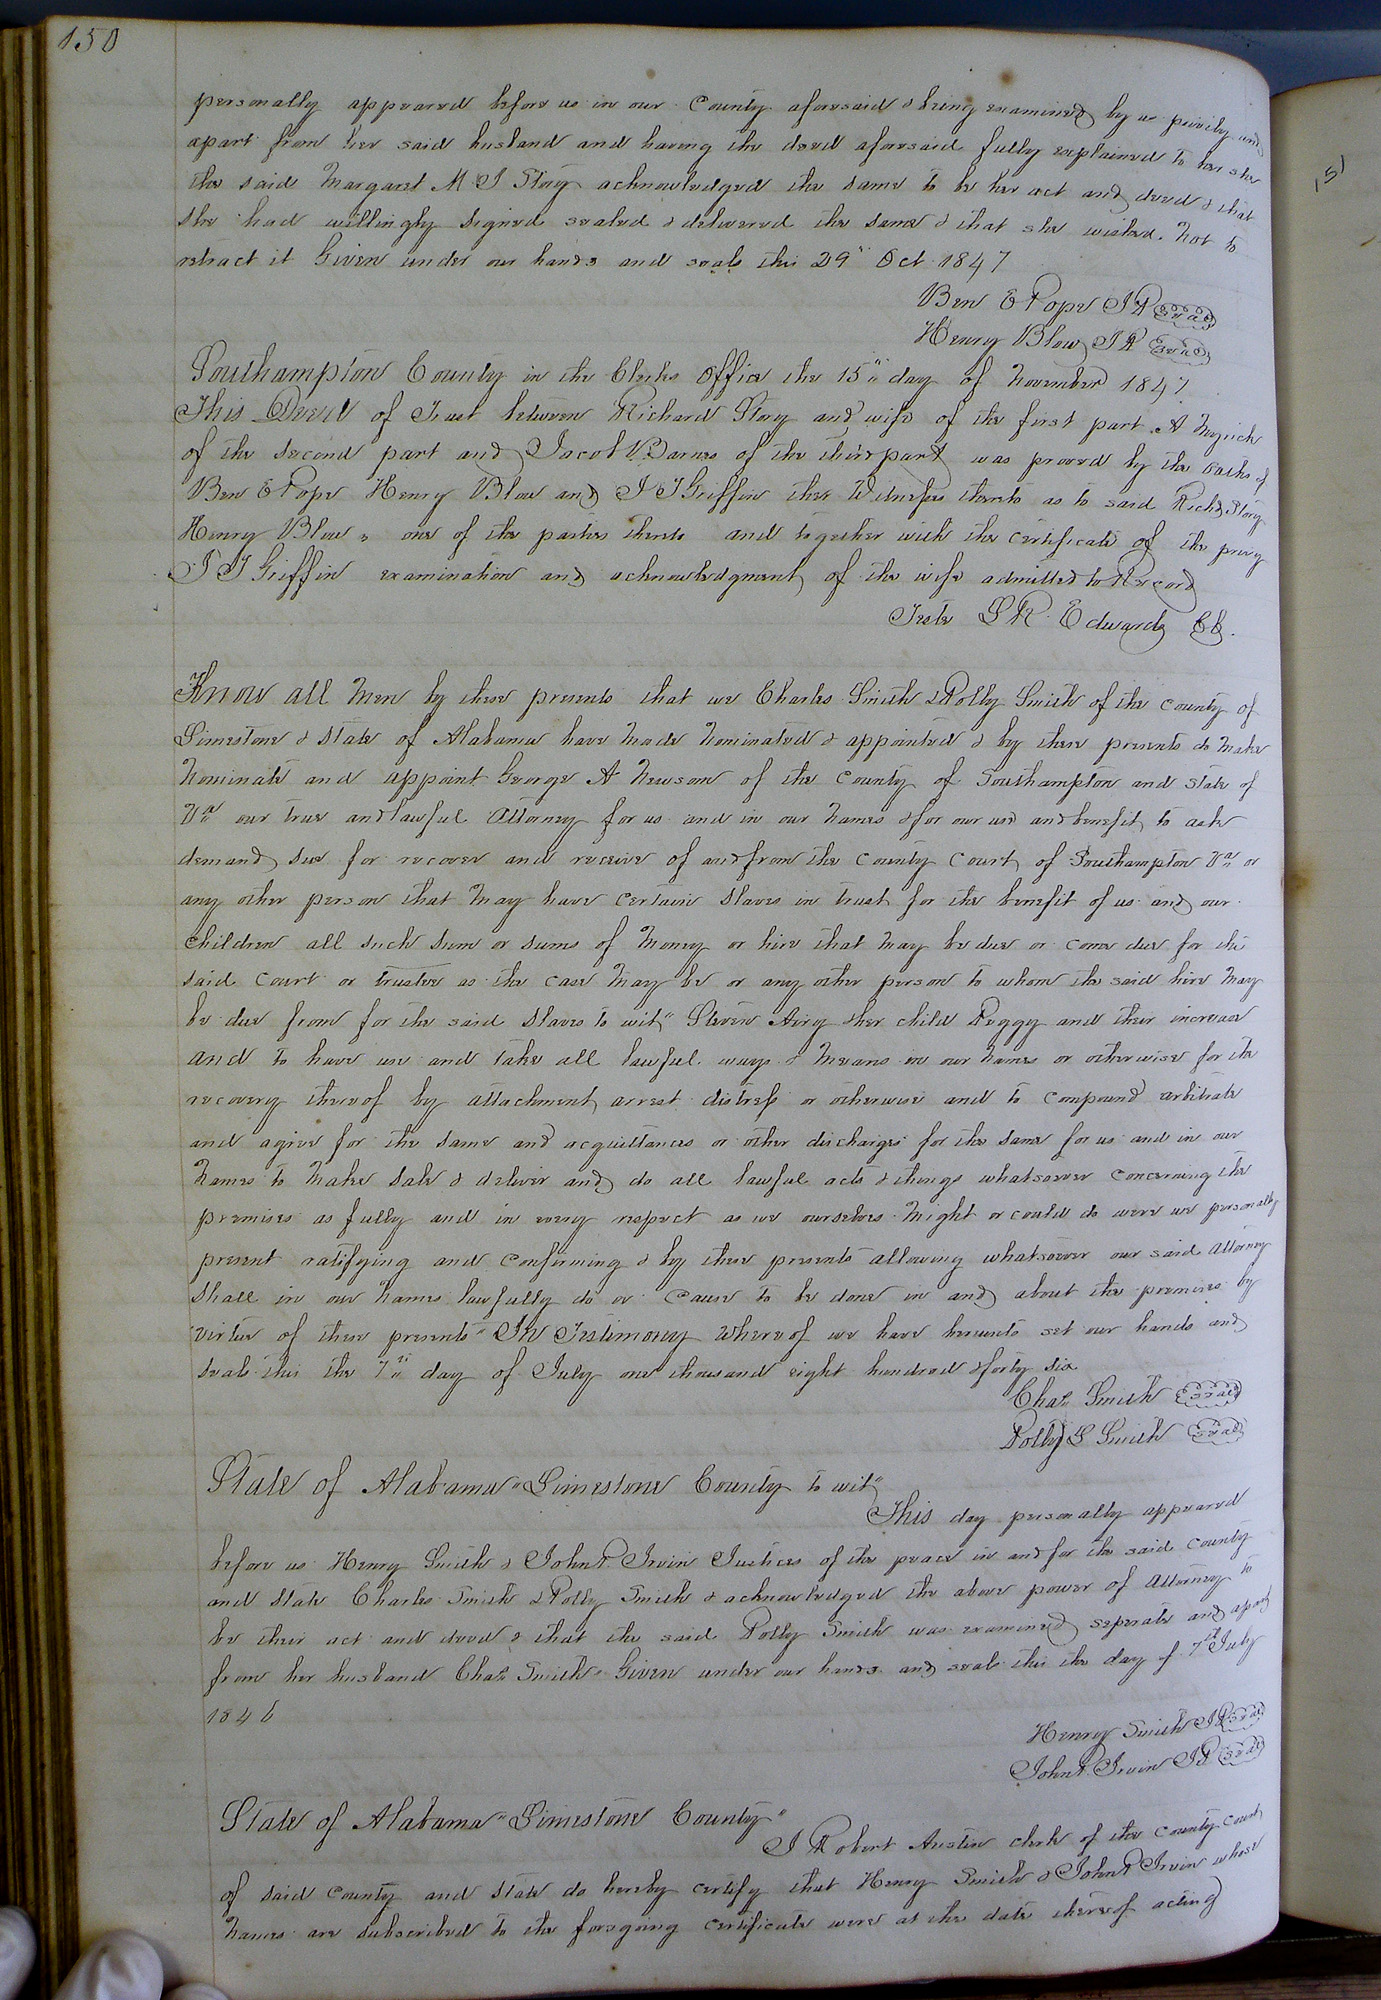 150
personally appeared before us in our County aforesaid & being examined by us privily and
apart from her said husband and having the deed aforesaid fully explained to her she
the said Margaret M J Story acknowledged the same to be her act and deed & that
she had willingly signed sealed & delivered the same & that she wished not to
retract it Given under our hands and seals this 29" Oct 1847
Ben E Pope JP Seal
Henry Blow JP Seal
Southampton County in the Clerks Office the 15" day of November 1847.
This Deed of Trust between Richard Story and wife of the first part A Myrick
of the second part and Jacob Barnes of the third part was proved by the oaths of
Ben E Pope Henry Blow and J J Griffin the Witnesses thereto as to said Richd Story
Henry Blow one of the parties thereto and together with the certificate of the privy
J J Griffin examination and acknowledgment of the wife admitted to Record
Teste L R Edwards CC.
Know all men by these presents that we Charles Smith & Polly Smith of the county of
Limestone & State of Alabama have made nominated & appointed & by these presents do make
nominate and appoint George A Newsom of the County of Southampton and state of
Va our true and lawful Attorney for us and in our names & for our use and benefit to ask
demand sue for recover and receive of and from the County Court of Southampton Va or
any other person that may have certain slaves in trust for the benefit of us and our
children all such sum or sums of money or hire that may be due or come due for the
said Court or trustee as the case may be or any other person to whom the said hire may
be due from for the said slaves to wit" Steven Airy & her child Peggy and their increase
and to have use and take all lawful ways & means in our names or otherwise for the
recovery thereof by attachment arrest distress or otherwise and to compound arbitrate
and agree for the same and acquittances or other discharges for the same for us and in our
names to make sale & deliver and do all lawful acts & things whatsoever concerning the
premises as fully and in every respect as we ourselves might or could do were we personally
present ratifying and confirming & by these presents allowing whatsoever our said Attorney
shall in our names lawfully do or cause to be done in and about the premises by
virtue of these presents" In Testimony whereof we have hereunto set our hands and
seals this the 7th day of July one thousand eight hundred & forty six
Chas Smith Seal
Polly S Smith Seal
State of Alabama "Limestone County to wit"
This day personally appeared
before us Henry Smith & John P. Irvin Justices of the peace in and for the said County
and State Charles Smith & Polly Smith & acknowledged the above power of Attorney to
be their act and deed & that the said Polly Smith was examined seperate and apart
from her husband Chas Smith" Given under our hands and seals this the day of 7th July
1846
Henry Smith JP Seal
John P. Irvin JP Seal
State of Alabama "Limestone County"
I Robert Austin clerk of the County court
of said County and State do hereby certify that Henry Smith & John P Irvin whose
names are subscribed to the foregoing certificate were at the date thereof acting
151